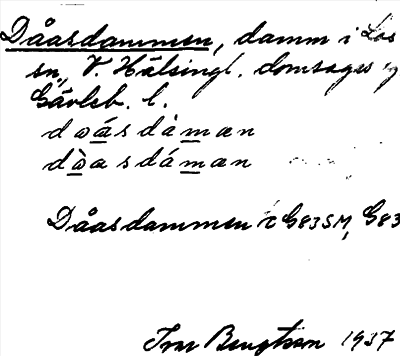 Dåasdammen, damm i Los
sn, V. Hälsingl. domsagas
Gävleb. l.
dɷásdàmæn
dɷ̀asdámæn
Dåasdammen G83SM, G83
Ivar Bengtsson 1937